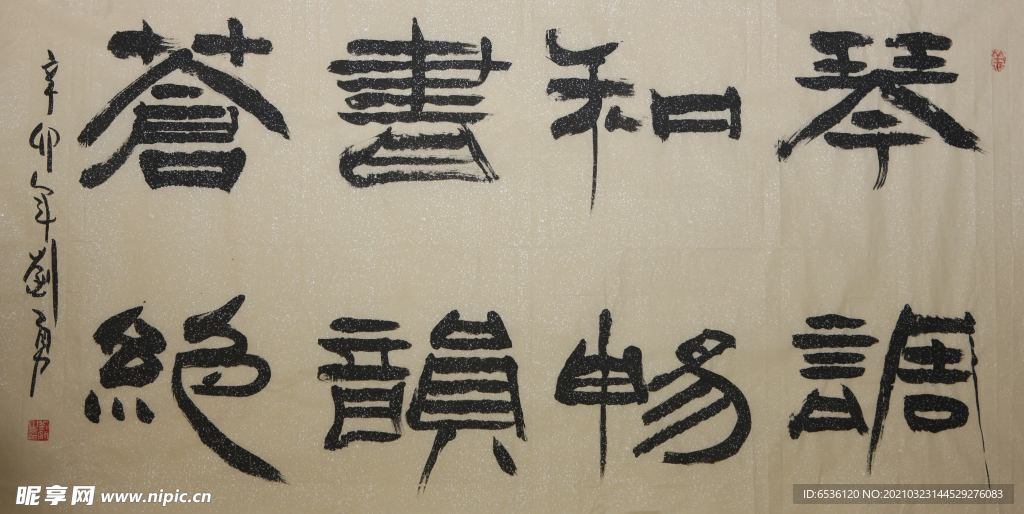 琴調
和暢
書韻
蒼絕
辛卯年劉勇
昵享网 www.nipic.cn
ID:6536120 NO:20210323144529276083